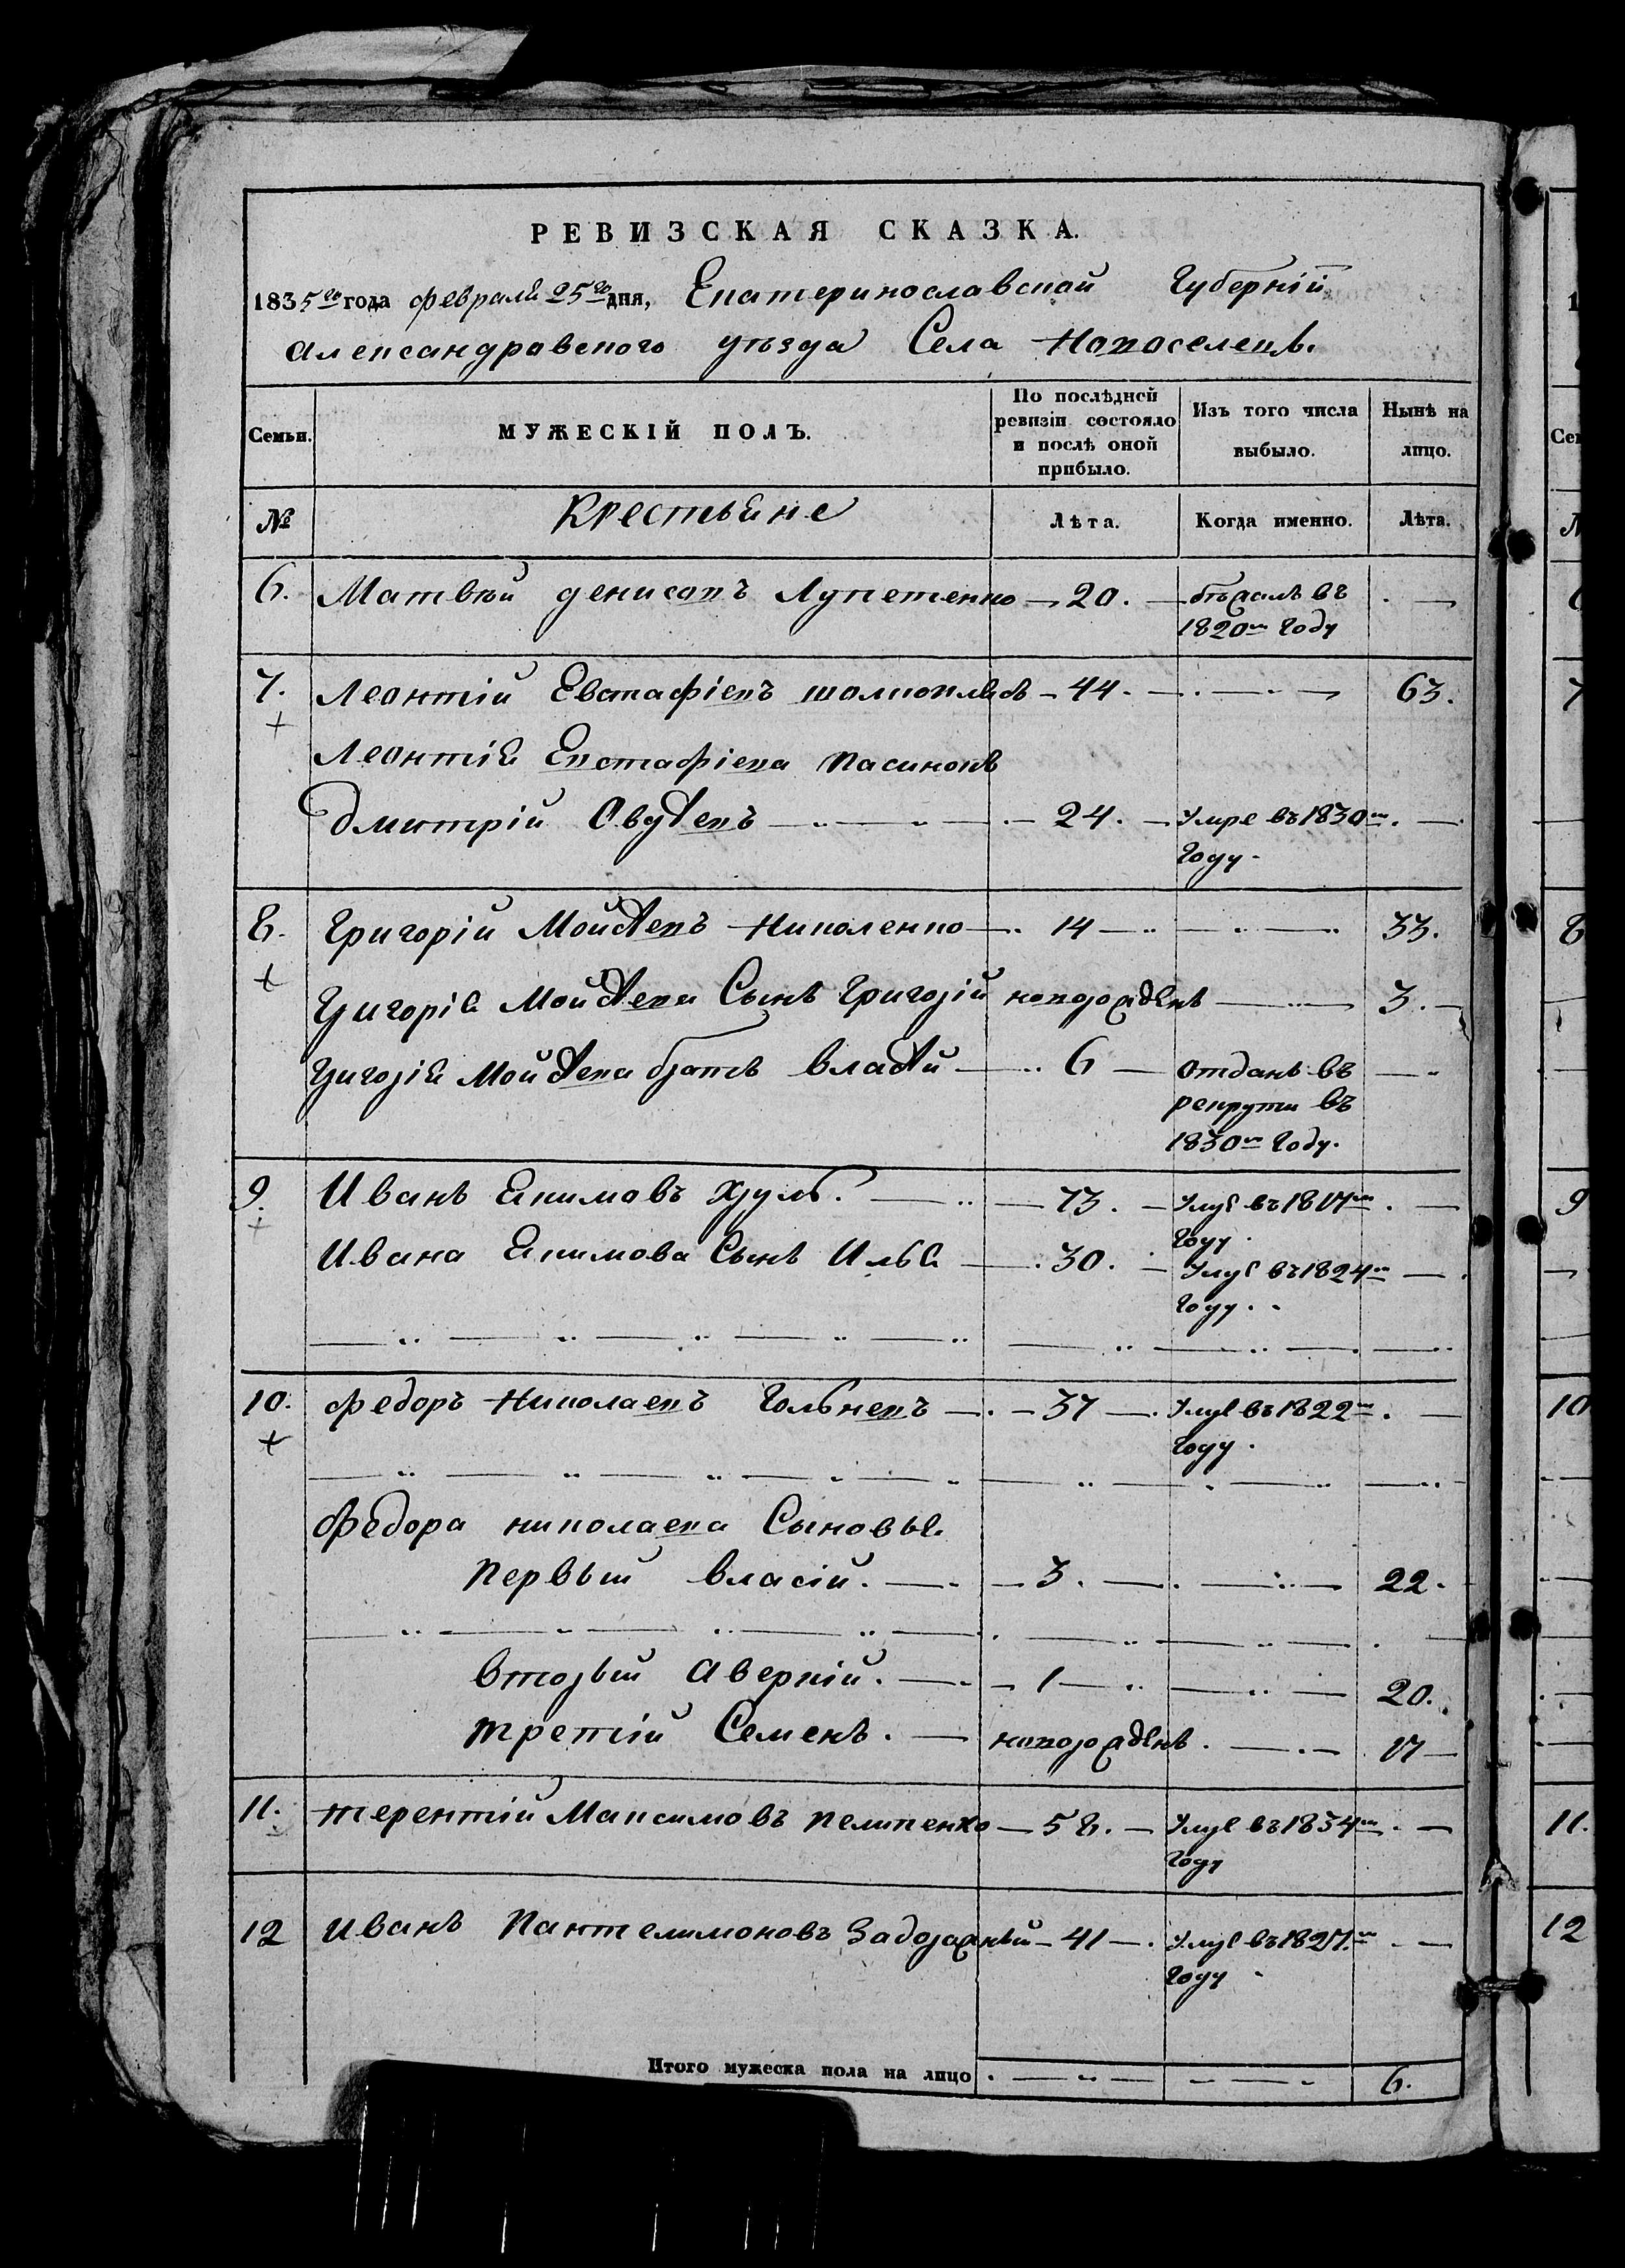 РЕВИЗСКАЯ СКАЗКА.
1835го года февраля 25го дня, Екатеринославской Губерніи
Александровского уѣзда Села Новоселевъ.
Семьи.
МУЖЕСКІЙ ПОЛЪ.
По послѣдней
ревизіи состояло
и послѣ оной
прибыло.
Изъ того числа
выбыло.
Нынѣ на
лицо.
№ Крестьяне Лѣта. Когда именно. Лѣта.
6. Матвѣй Денисовъ 20. бѣжалъ въ
1820м Году
7. Леонтій Евстафіевъ 44. 63.
Леонтія Евстафіева пасинокъ
Дмитрій 24. Умре въ 1830м
Году.
8. Григорій Мойсеевъ Николенко 14 33.
Григорія Мойсеева Сынъ Григорій новорожденъ 3.
Григорія Мойсеева братъ Власій 6 отданъ въ
рекруты въ
1830м Году.
9. Иванъ Екимовъ 73. Умре въ 1817м
Году.
Ивана Екимова Сынъ Илья 30. Умре въ 1824м
Году.
10. Федоръ Николаевъ 37 Умре въ 1822м
Году.
Федора Николаева Сыновья
Первый Власій. 3. 22.
Вторый Аверкій. 1 20.
Третій Семенъ. новорожденъ. 17
11. Терентій Максимовъ Пелипенко 58. Умре въ 1834м
Году
12 Иванъ Пантелимоновъ Задорожный 41 Умре въ 1827м
Году
Итого мужеска пола на лицо 6.